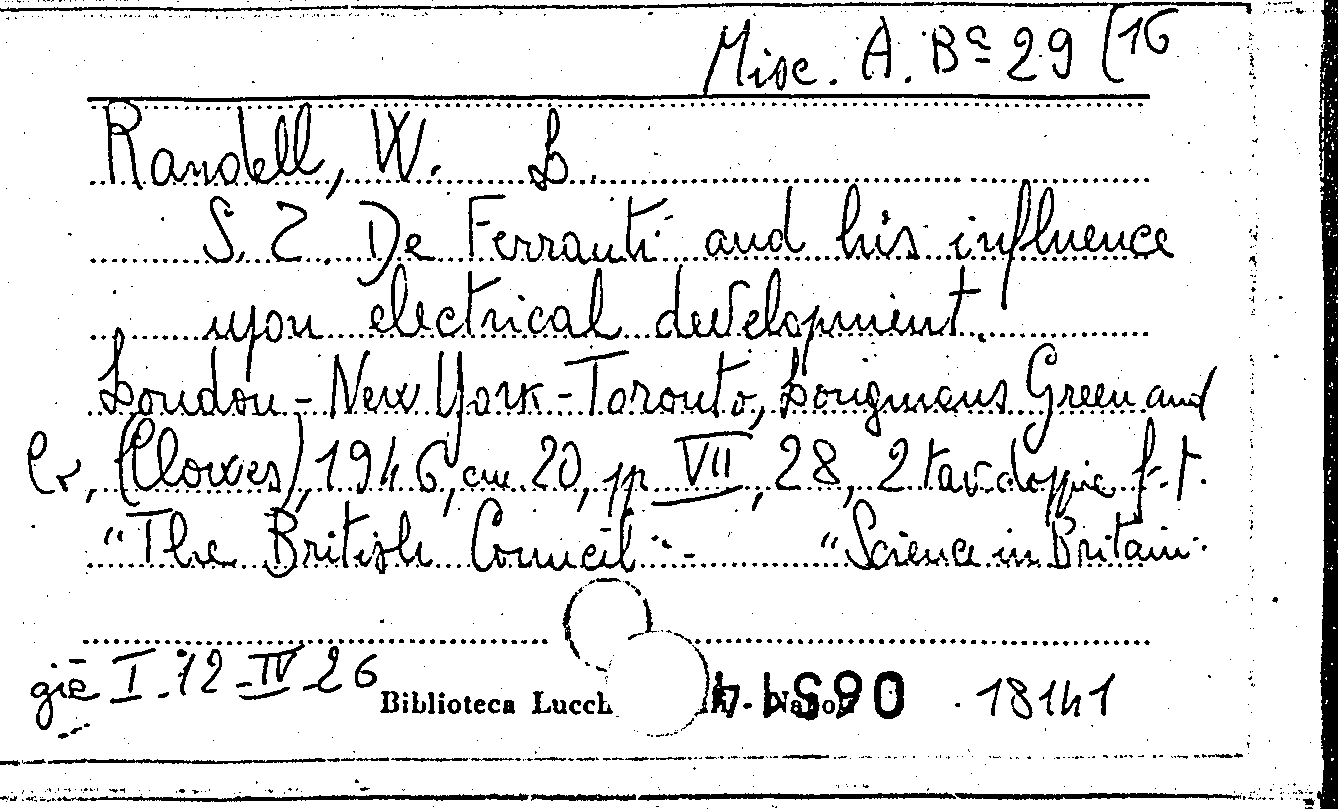 Misc. A. Bᵃ 29 (16
Randell, W. L.
S. Z. De Ferranti and his influence
upon electrical development.
London - New York - Toronto, Longmans Green and
Co, (Clowes), 1946, cm 20, pp VII, 28, 2 tav. doppie f.t.
"The British Council" - "Science in Britain".
già I. 12 - IV 26
Biblioteca Lucch - Napoli
18141